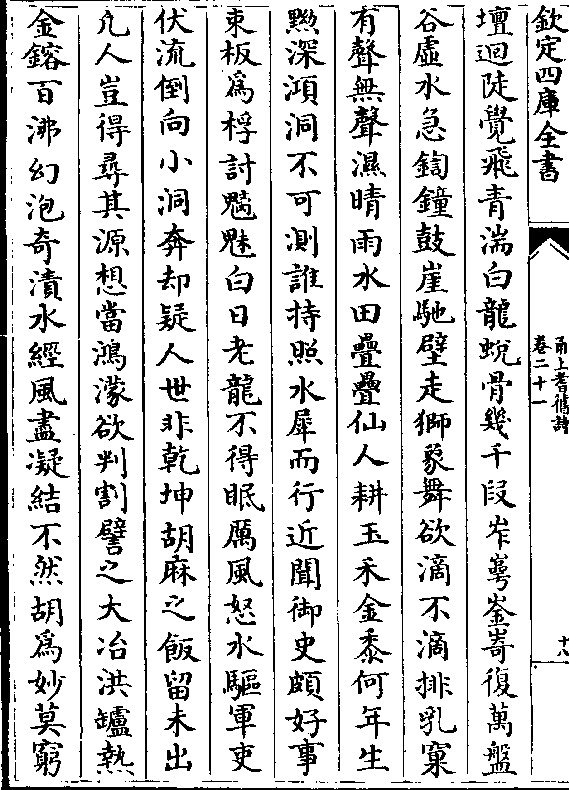 欽定四庫全書
甬上耆舊詩
卷二十一
十八
壇迴陡覺飛青湍白龍蛻骨幾千段岞崿崟崎復萬盤
谷虛水急鍧鐘鼓崖馳壁走獅象舞欲滴不滴排乳窠
有聲無聲濕晴雨水田疊疊仙人耕玉禾金黍何年生
黝深澒洞不可測誰持照水犀而行近聞御史頗好事
束板為桴討魑魅白日老龍不得眠厲風怒水驅軍吏
伏流倒向小洞奔却疑人世非乾坤胡麻之飯留未出
凢人豈得尋其源想當鴻濛欲判割譬之大冶洪罏熱
金鎔百沸幻泡奇漬水經風盡凝結不然胡為妙莫窮